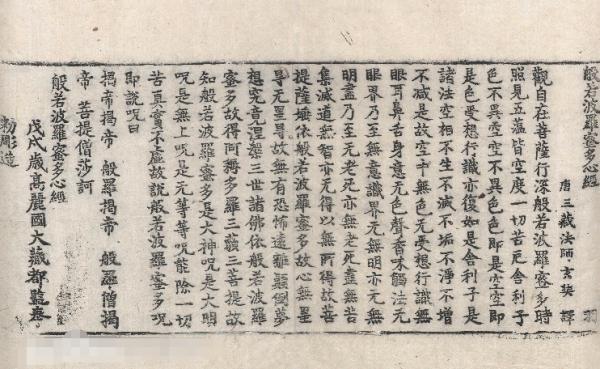 般若波羅蜜多心經
唐三藏法師玄奘 譯 羽
觀自在菩薩行深般若波羅蜜多時
照見五蘊皆空度一切苦厄舍利子
色不異空空不異色色即是空空即
是色受想行識亦復如是舍利子是
諸法空相不生不滅不垢不淨不增
不減是故空中無色无受想行識無
眼耳鼻舌身意无色聲香味觸法无
眼界乃至无意識界无無明亦无無
明盡乃至无老死亦無老死盡無苦
集滅道無智亦无得以無所得故菩
提薩埵依般若波羅蜜多故心無罣
㝵无罣㝵故無有恐怖遠離顛倒夢
想究竟涅槃三世諸佛依般若波羅
蜜多故得阿耨多羅三藐三菩提故
知般若波羅蜜多是大神呪是大明
呪是無上呪是无等等呪能除一切
苦真實不虛故說般若波羅蜜多呪
即說呪曰
揭帝揭帝 般羅揭帝 般羅僧揭
帝 菩提僧莎訶
般若波羅蜜多心經
戊戌歲高麗國大藏都監奉
勅彫造